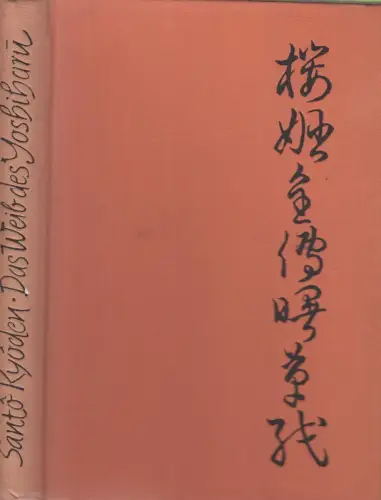 Santô Kyôden · Das Weib des Yoshiharū
櫻姫全傳曙草紙